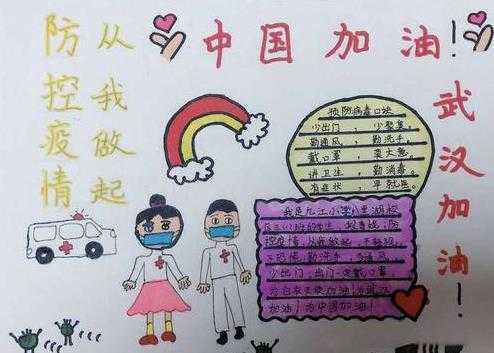 中国加油!
防控疫情
从我做起
武汉加油!
预防病毒口诀
少出门，少聚集。
勤通风，勤洗手。
戴口罩，莫大意。
讲卫生，勤消毒。
有症状，早就医。
我是九江小学八里湖校
控疫情，从我做起，不
不恐慌，勤洗手，多通风
少出门，出门一定戴口罩
为白衣天使加油!为武汉
加油!为中国加油!